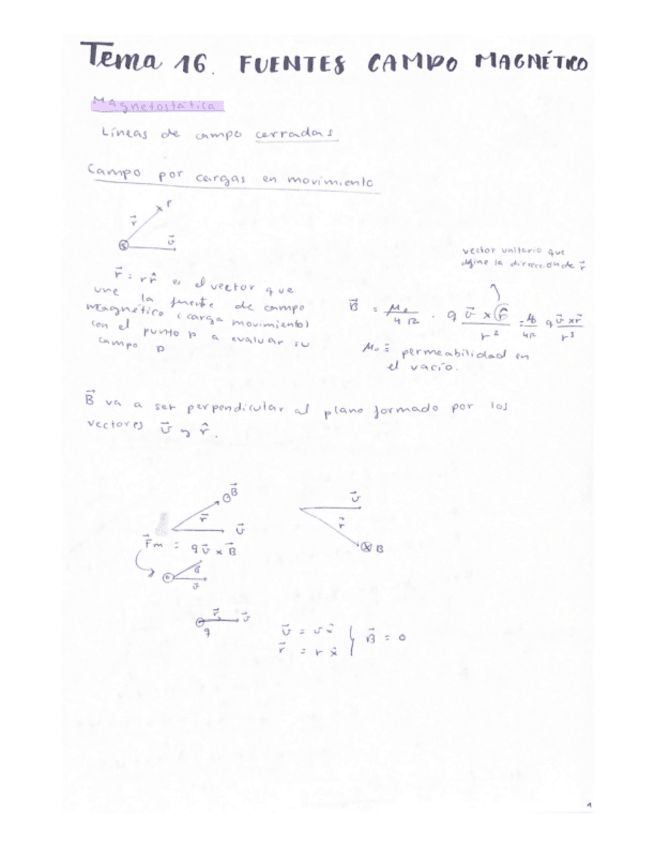 Tema 16. FUENTES CAMPO MAGNÉTICO
Magnetostática
Líneas de campo cerradas
Campo por cargas en movimiento
P
r⃗
v⃗
r⃗ = r r̂ es el vector que
une la fuente de campo
magnético (carga movimiento)
con el punto p a evaluar su
campo p
vector unitario que
define la dirección de r⃗
B⃗ = μ₀/4π · q v⃗ × r̂ / r² = μ₀/4π q v⃗ × r⃗ / r³
μ₀ = permeabilidad en
el vacío.
B⃗ va a ser perpendicular al plano formado por los
vectores v⃗ y r̂.
B⃗
r⃗
v⃗
F⃗m = q v⃗ × B⃗
v⃗
r⃗
B
r⃗
v⃗
q
v⃗ = v x̂
r⃗ = r x̂
} B⃗ = 0
1